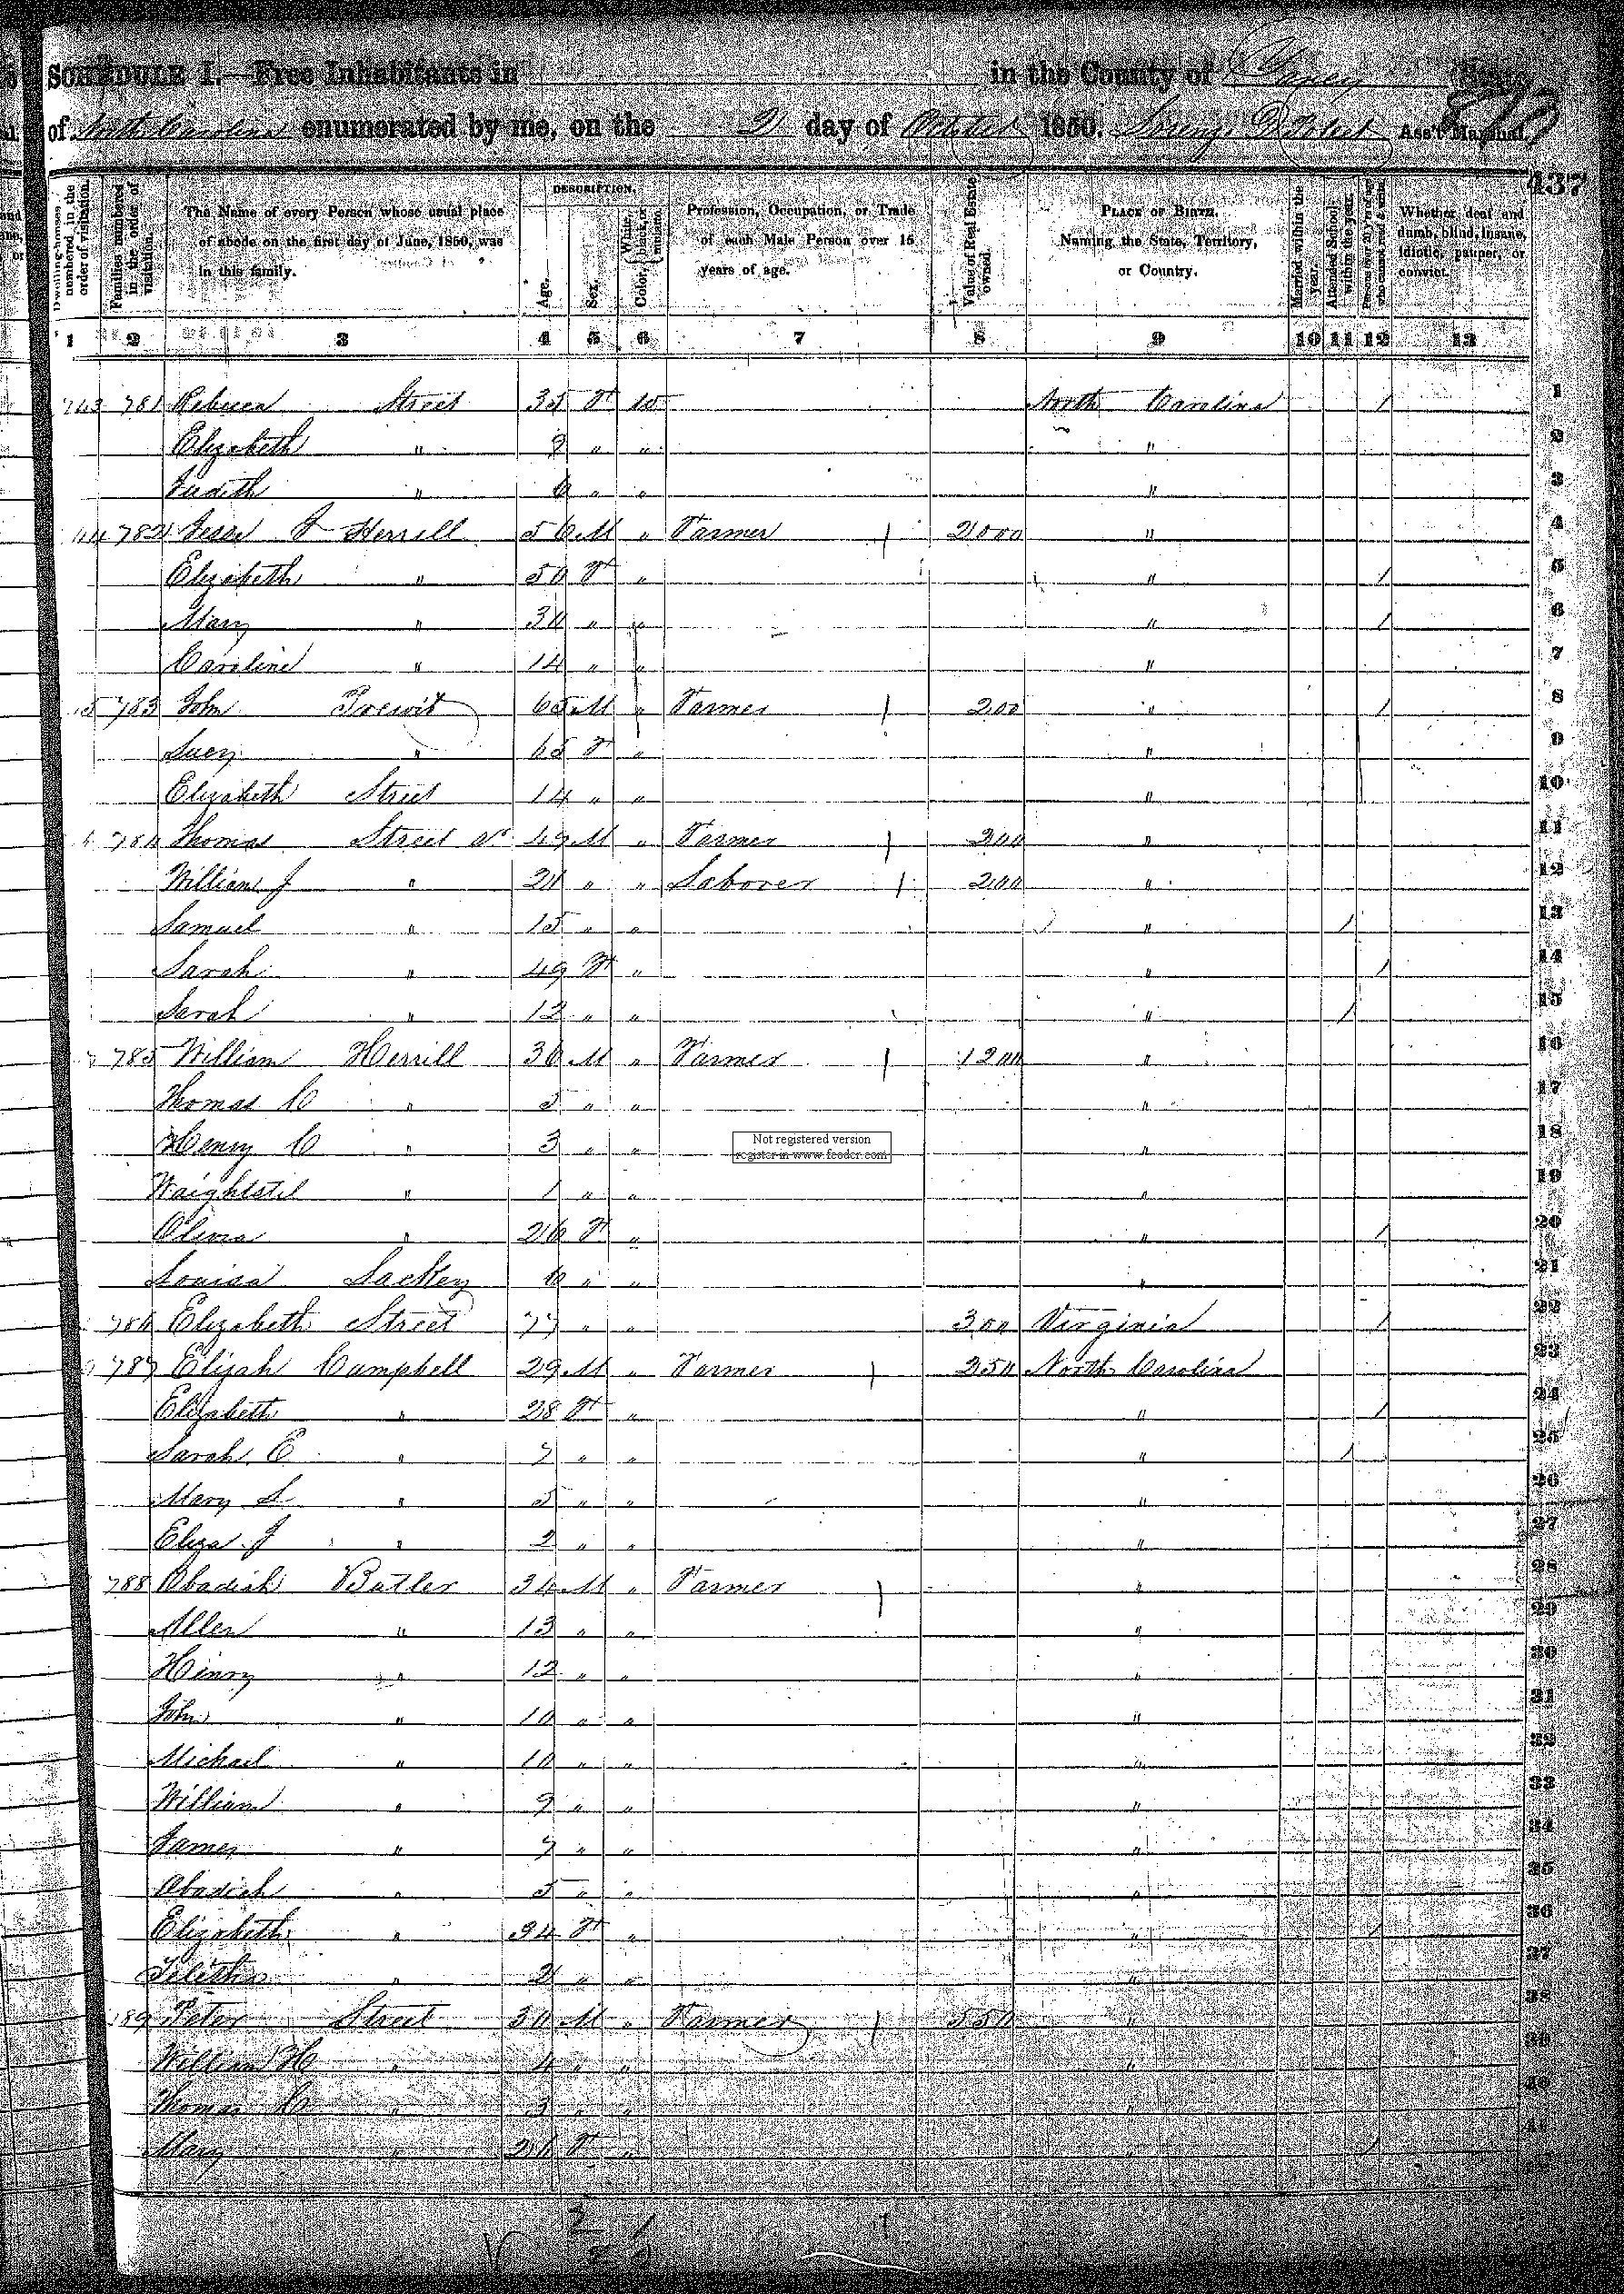 SCHEDULE I.—Free Inhabitants in in the County of Yancey State
of North Carolina enumerated by me, on the 2 day of October 1850. Lorenzo D Ass't Marshal.
437
Dwelling-houses numbered in the order of visitation.
Families numbered in the order of visitation.
The Name of every Person whose usual place of abode on the first day of June, 1850, was in this family.
DESCRIPTION.
Age.
Sex.
Color, White, black, or mulatto.
Profession, Occupation, or Trade of each Male Person over 15 years of age.
Value of Real Estate owned.
PLACE OF BIRTH. Naming the State, Territory, or Country.
Married within the year.
Attended School within the year.
Persons over 20 y'rs of age who cannot read & write.
Whether deaf and dumb, blind, insane, idiotic, pauper, or convict.
1 2 3 4 5 6 7 8 9 10 11 12 13
743 781 Rebecca Street 35 F W North Carolina / 1
Elizabeth " 9 " " " 2
Judith " 6 " " " 3
44 782 Jesse J Herrill 56 M " Farmer 2000 " 4
Elizabeth " 50 F " " / 5
Mary " 30 " " " / 6
Caroline " 14 " " " 7
5 783 John Prewit 65 M " Farmer 200 " / 8
Lucy " 65 F " " 9
Elizabeth Street 14 " " " 10
784 Thomas Street 49 M " Farmer 300 " 11
William J " 20 " " Laborer 200 " 12
Samuel " 15 " " " / 13
Sarah " 49 F " " / 14
Sarah " 12 " " " / 15
785 William Herrill 36 M " Farmer 1200 " 16
Thomas C " 5 " " " 17
Henry C " 3 " " " 18
Waightstil " 1 " " " 19
" 26 F " " / 20
Louisa Lackey 6 " " " 21
786 Elizabeth Street 77 " " 300 Virginia / 22
787 Elijah Campbell 29 M " Farmer 250 North Carolina 23
Elizabeth " 28 F " " / 24
Sarah E " 7 " " " / 25
Mary L " 5 " " " 26
Eliza J " 2 " " " 27
788 Obadiah Butler 34 M " Farmer " 28
Allen " 13 " " " 29
Henry " 12 " " " 30
John " 10 " " " 31
Michael " 10 " " " 32
William " 9 " " " 33
James " 7 " " " 34
Obadiah " 5 " " " 35
Elizabeth " 34 F " " / 36
" 2 " " " 37
789 Peter Street 30 M " Farmer 550 " 38
William H " 4 " " " 39
Thomas C " 3 " " " 40
Mary " 26 F " " / 41
Not registered version
register in www.feeder.com